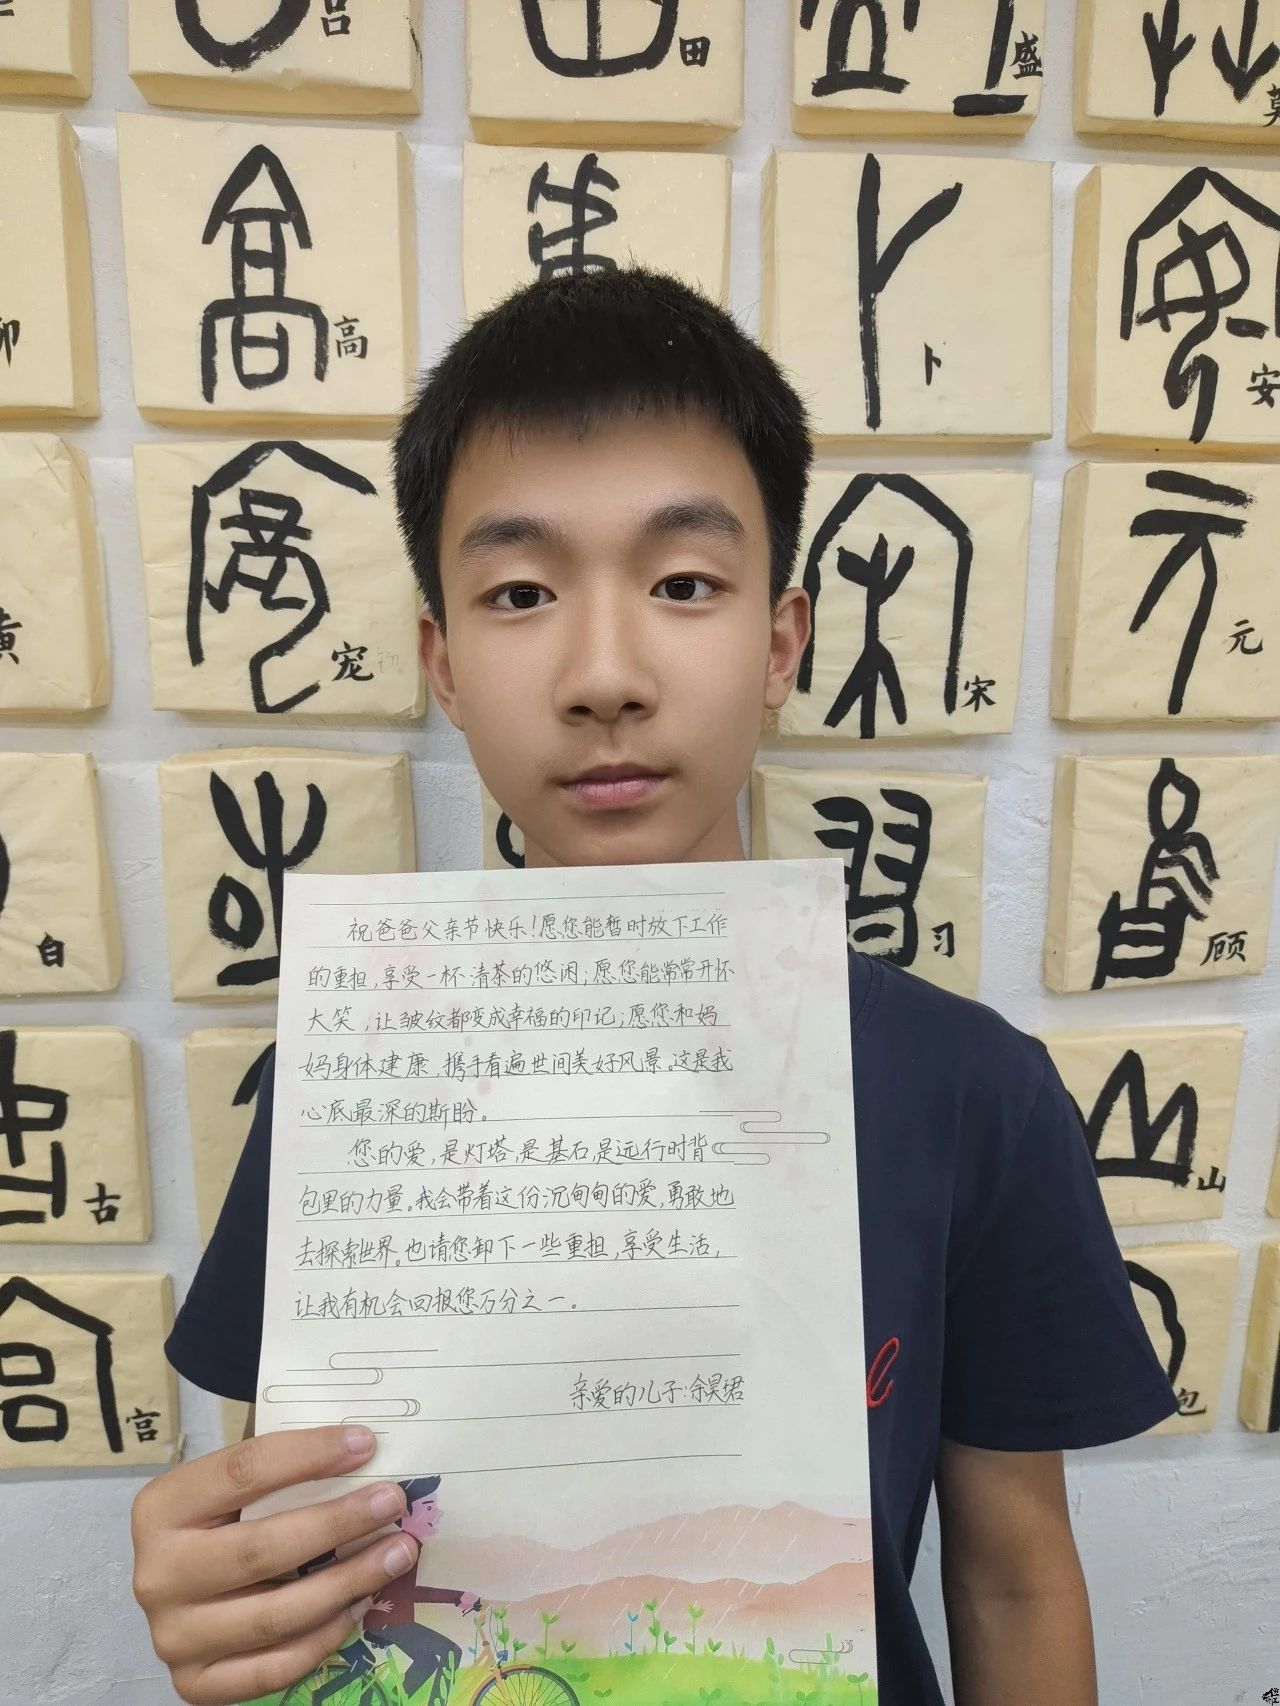 吕
田
盛
莫
卯
高
卜
安
黄
宠
宋
元
自
习
顾
古
山
宫
包
祝爸爸父亲节快乐！愿您能暂时放下工作
的重担，享受一杯清茶的悠闲；愿您能常常开怀
大笑，让皱纹都变成幸福的印记；愿您和妈
妈身体建康，携手看遍世间美好风景。这是我
心底最深的斯盼。
您的爱，是灯塔，是基石，是远行时背
包里的力量。我会带着这份沉甸甸的爱，勇敢地
去探索世界。也请您卸下一些重担，享受生活，
让我有机会回报您万分之一。
亲爱的儿子：余昊珺